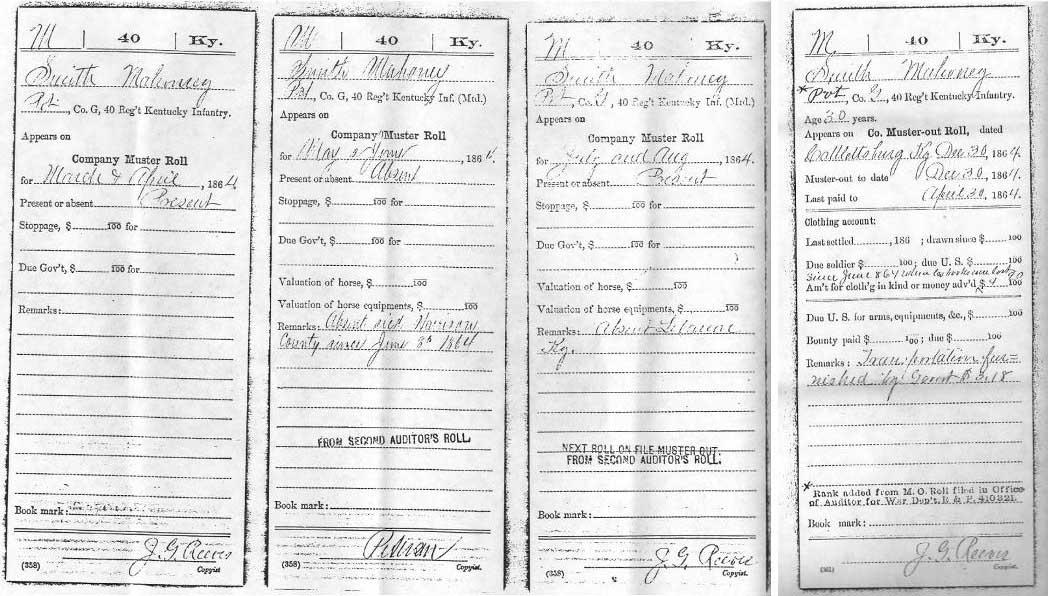 M | 40 | Ky.
Smith Mahoney
Pvt, Co. G, 40 Reg't Kentucky Infantry.
Appears on
Company Muster Roll
for March & April, 1864.
Present or absent Present
Stoppage, $ 100 for
Due Gov't, $ 100 for
Remarks:
Book mark:
J. G. Reeves
(358) Copyist.
M | 40 | Ky.
Smith Mahoney
Pvt, Co. G, 40 Reg't Kentucky Inf. (Mtd.)
Appears on
Company Muster Roll
for May & June, 1864.
Present or absent Absent
Stoppage, $ 100 for
Due Gov't, $ 100 for
Valuation of horse, $ 100
Valuation of horse equipments, $ 100
Remarks: Absent Harrison
County since June 8th 1864
FROM SECOND AUDITOR'S ROLL
Book mark:
(358) Copyist.
M | 40 | Ky.
Smith Mahoney
Pvt, Co. G, 40 Reg't Kentucky Inf. (Mtd.)
Appears on
Company Muster Roll
for July and Aug, 1864.
Present or absent Present
Stoppage, $ 100 for
Due Gov't, $ 100 for
Valuation of horse, $ 100
Valuation of horse equipments, $ 100
Remarks: Absent
Ky.
NEXT ROLL ON FILE MUSTER OUT.
FROM SECOND AUDITOR'S ROLL.
Book mark:
J. G. Reeves
(358) Copyist.
M | 40 | Ky.
Smith Mahoney
* Pvt, Co. G, 40 Reg't Kentucky Infantry.
Age 30 years.
Appears on Co. Muster-out Roll, dated
Catlettsburg Ky Dec 30, 1864.
Muster-out to date Dec 30, 1864.
Last paid to April 30, 1864.
Clothing account:
Last settled, 186 ; drawn since $ 100
Due soldier $ 100; due U. S. $ 100
Since June 864 when books were lost
Am't for cloth'g in kind or money adv'd $ 100
Due U. S. for arms, equipments, &c., $ 100
Bounty paid $ 100; due $ 100
Remarks: Transportation fur=
nished by Govt $ 3.18
* Rank added from M. O. Roll filed in Office
of Auditor for War Dep't, R & P. 410321.
Book mark:
J. G. Reeves
Copyist.